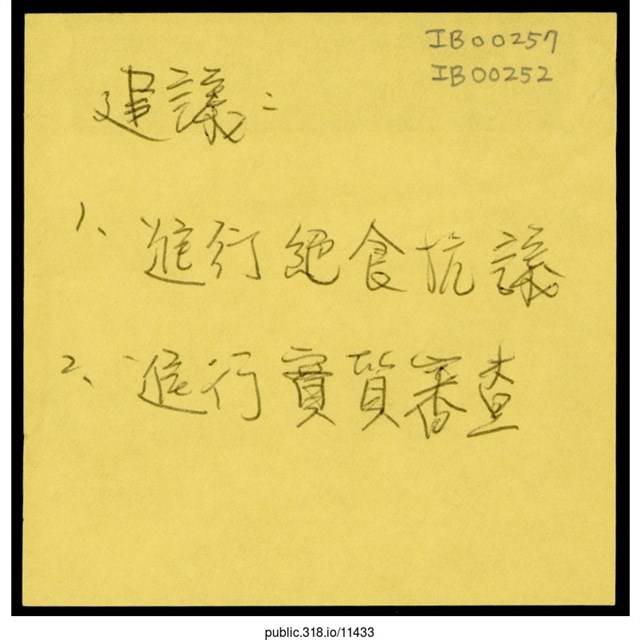 IB00257
IB00252
建議：
1、進行絕食抗議
2、進行實質審查
public.318.io/11433